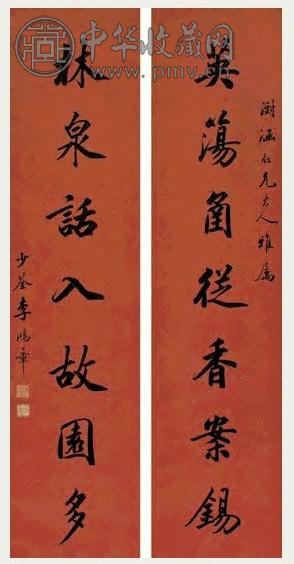 中华收藏网
www.pmv.cn
仁兄大人雅屬
英蕩從香案錫
林泉話入故園多
少荃李鴻章